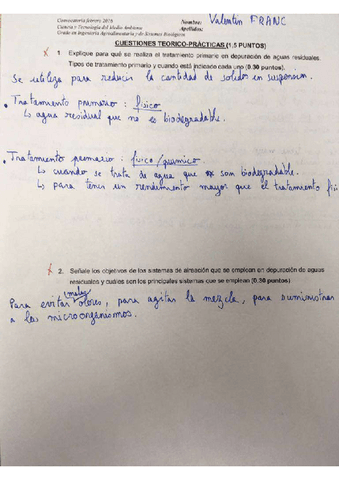 Convocatoria febrero 2016
Ciencia y Tecnología del Medio Ambiente
Grado en Ingeniería Agroalimentaria y de Sistemas Biológicos
Nombre: Valentin FRANC
Apellidos:
CUESTIONES TEORICO-PRÁCTICAS (1,5 PUNTOS)
1. Explique para qué se realiza el tratamiento primario en depuración de aguas residuales.
Tipos de tratamiento primario y cuando está indicado cada uno (0.30 puntos).
Se utiliza para reducir la cantidad de solidos en suspension.
• Tratamiento primario : fisico
↳ agua residual que no es biodegradable.
• Tratamiento primario : fisico/quimico.
↳ cuando se trata de agua que son biodegradable.
↳ para tener un rendimiento mayor que el tratamiento fisi
2. Señale los objetivos de los sistemas de aireación que se emplean en depuración de aguas
residuales y cuáles son los principales sistemas que se emplean (0.30 puntos)
Para evitar malos olores, para agitar la mezcla, para suministrar
a los microorganismos.